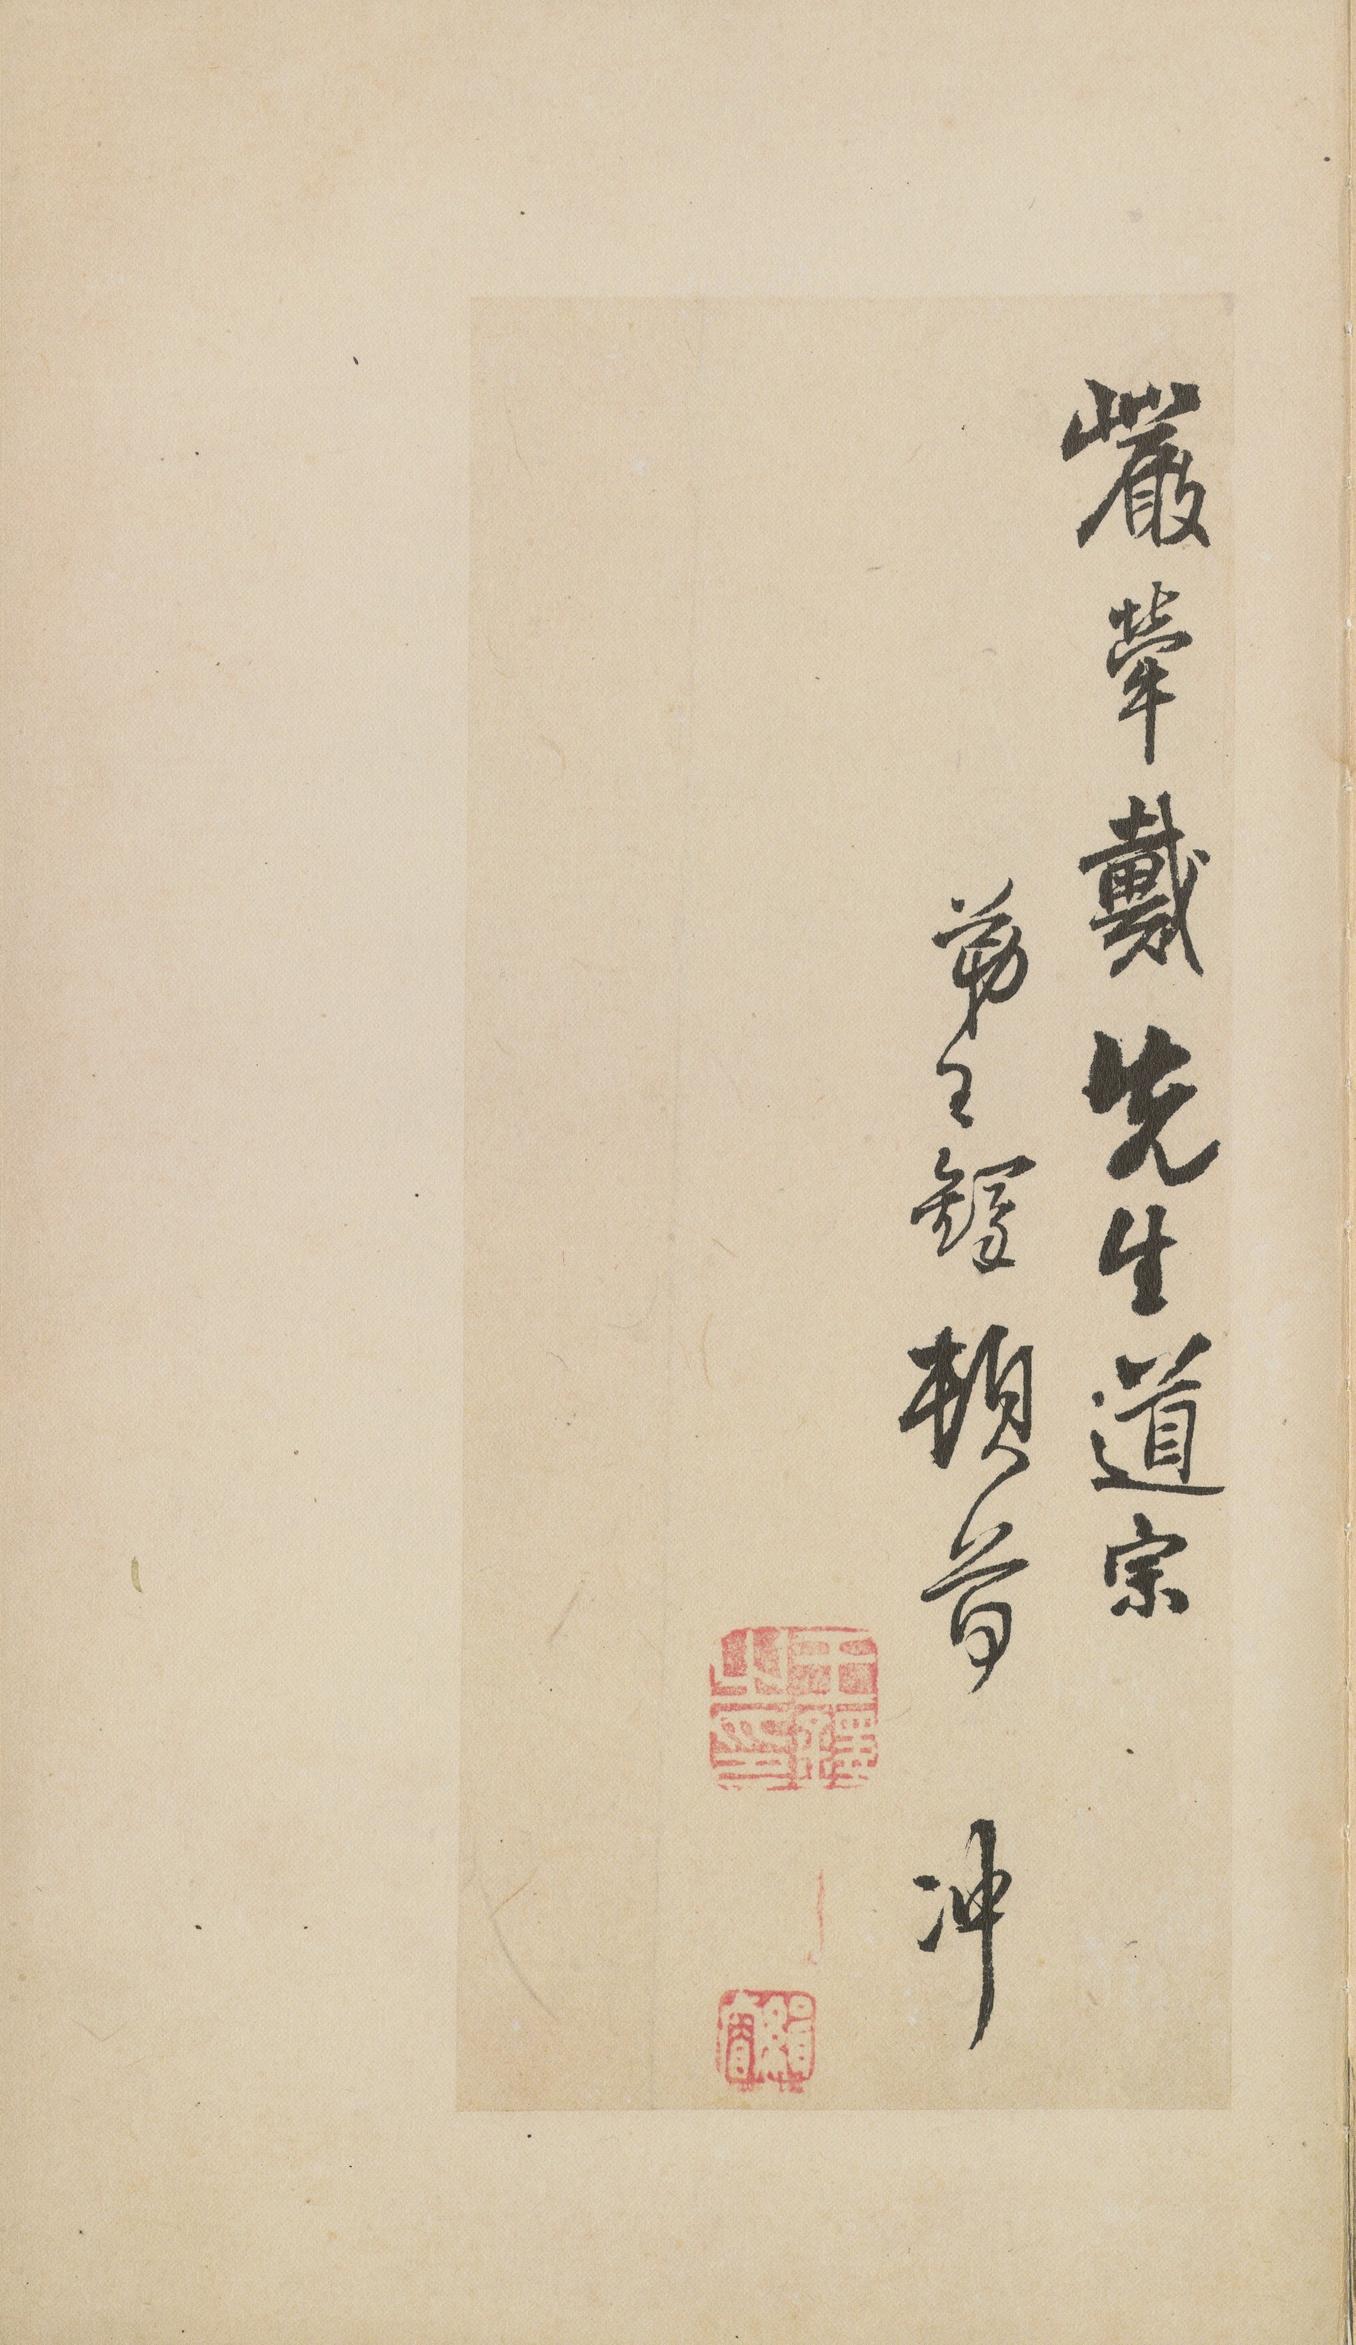 巖犖戴先生道宗
弟王鐸頓首 冲
王鐸之印